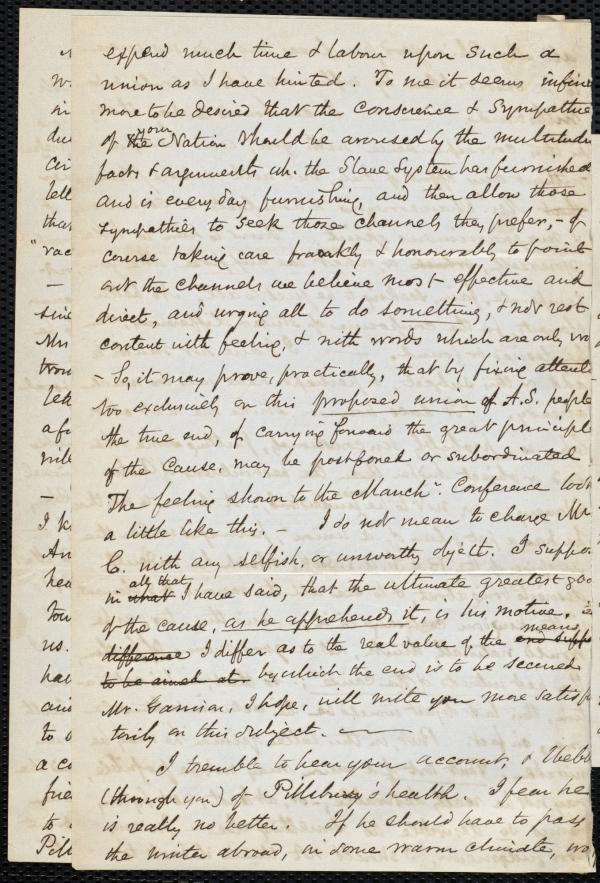 expend much time & labour upon such a
union as I have hinted. To me it seems infini
more to be desired that the conscience & sympathie
of the your Nation should be aroused by the multitudi
facts & arguments wh. the Slave System has furnished
and is every day furnishing, and then allow those
sympathies to seek those channels they prefer, - of
course taking care frankly & honourably to point
out the channels we believe most effective and
direct, and urging all to do something, & not rest
content with feeling, & with words which are only wo
- So, it may prove, practically, that by fixing attenti
too exclusively on this proposed union of A.S. people
the true end, of carrying forward the great principl
of the Cause, may be postponed or subordinated
The feeling shown to the Manchr. Conference look
a little like this. - I do not mean to charge Mr.
C. with any selfish, or unworthy object. I suppo
in what all that I have said, that the ultimate greatest goo
of the cause, as he apprehends it, is his motive.
difference I differ as to the real value of the end means
to be aimed at by which the end is to be secured
Mr. Garrison, I hope, will write you more satisf
torily on this subject. -
I tremble to hear your account, & Webb
(through you) of Pillsbury's health. I fear he
is really no better. If he should have to pass
the winter abroad, in some warm climate, wo